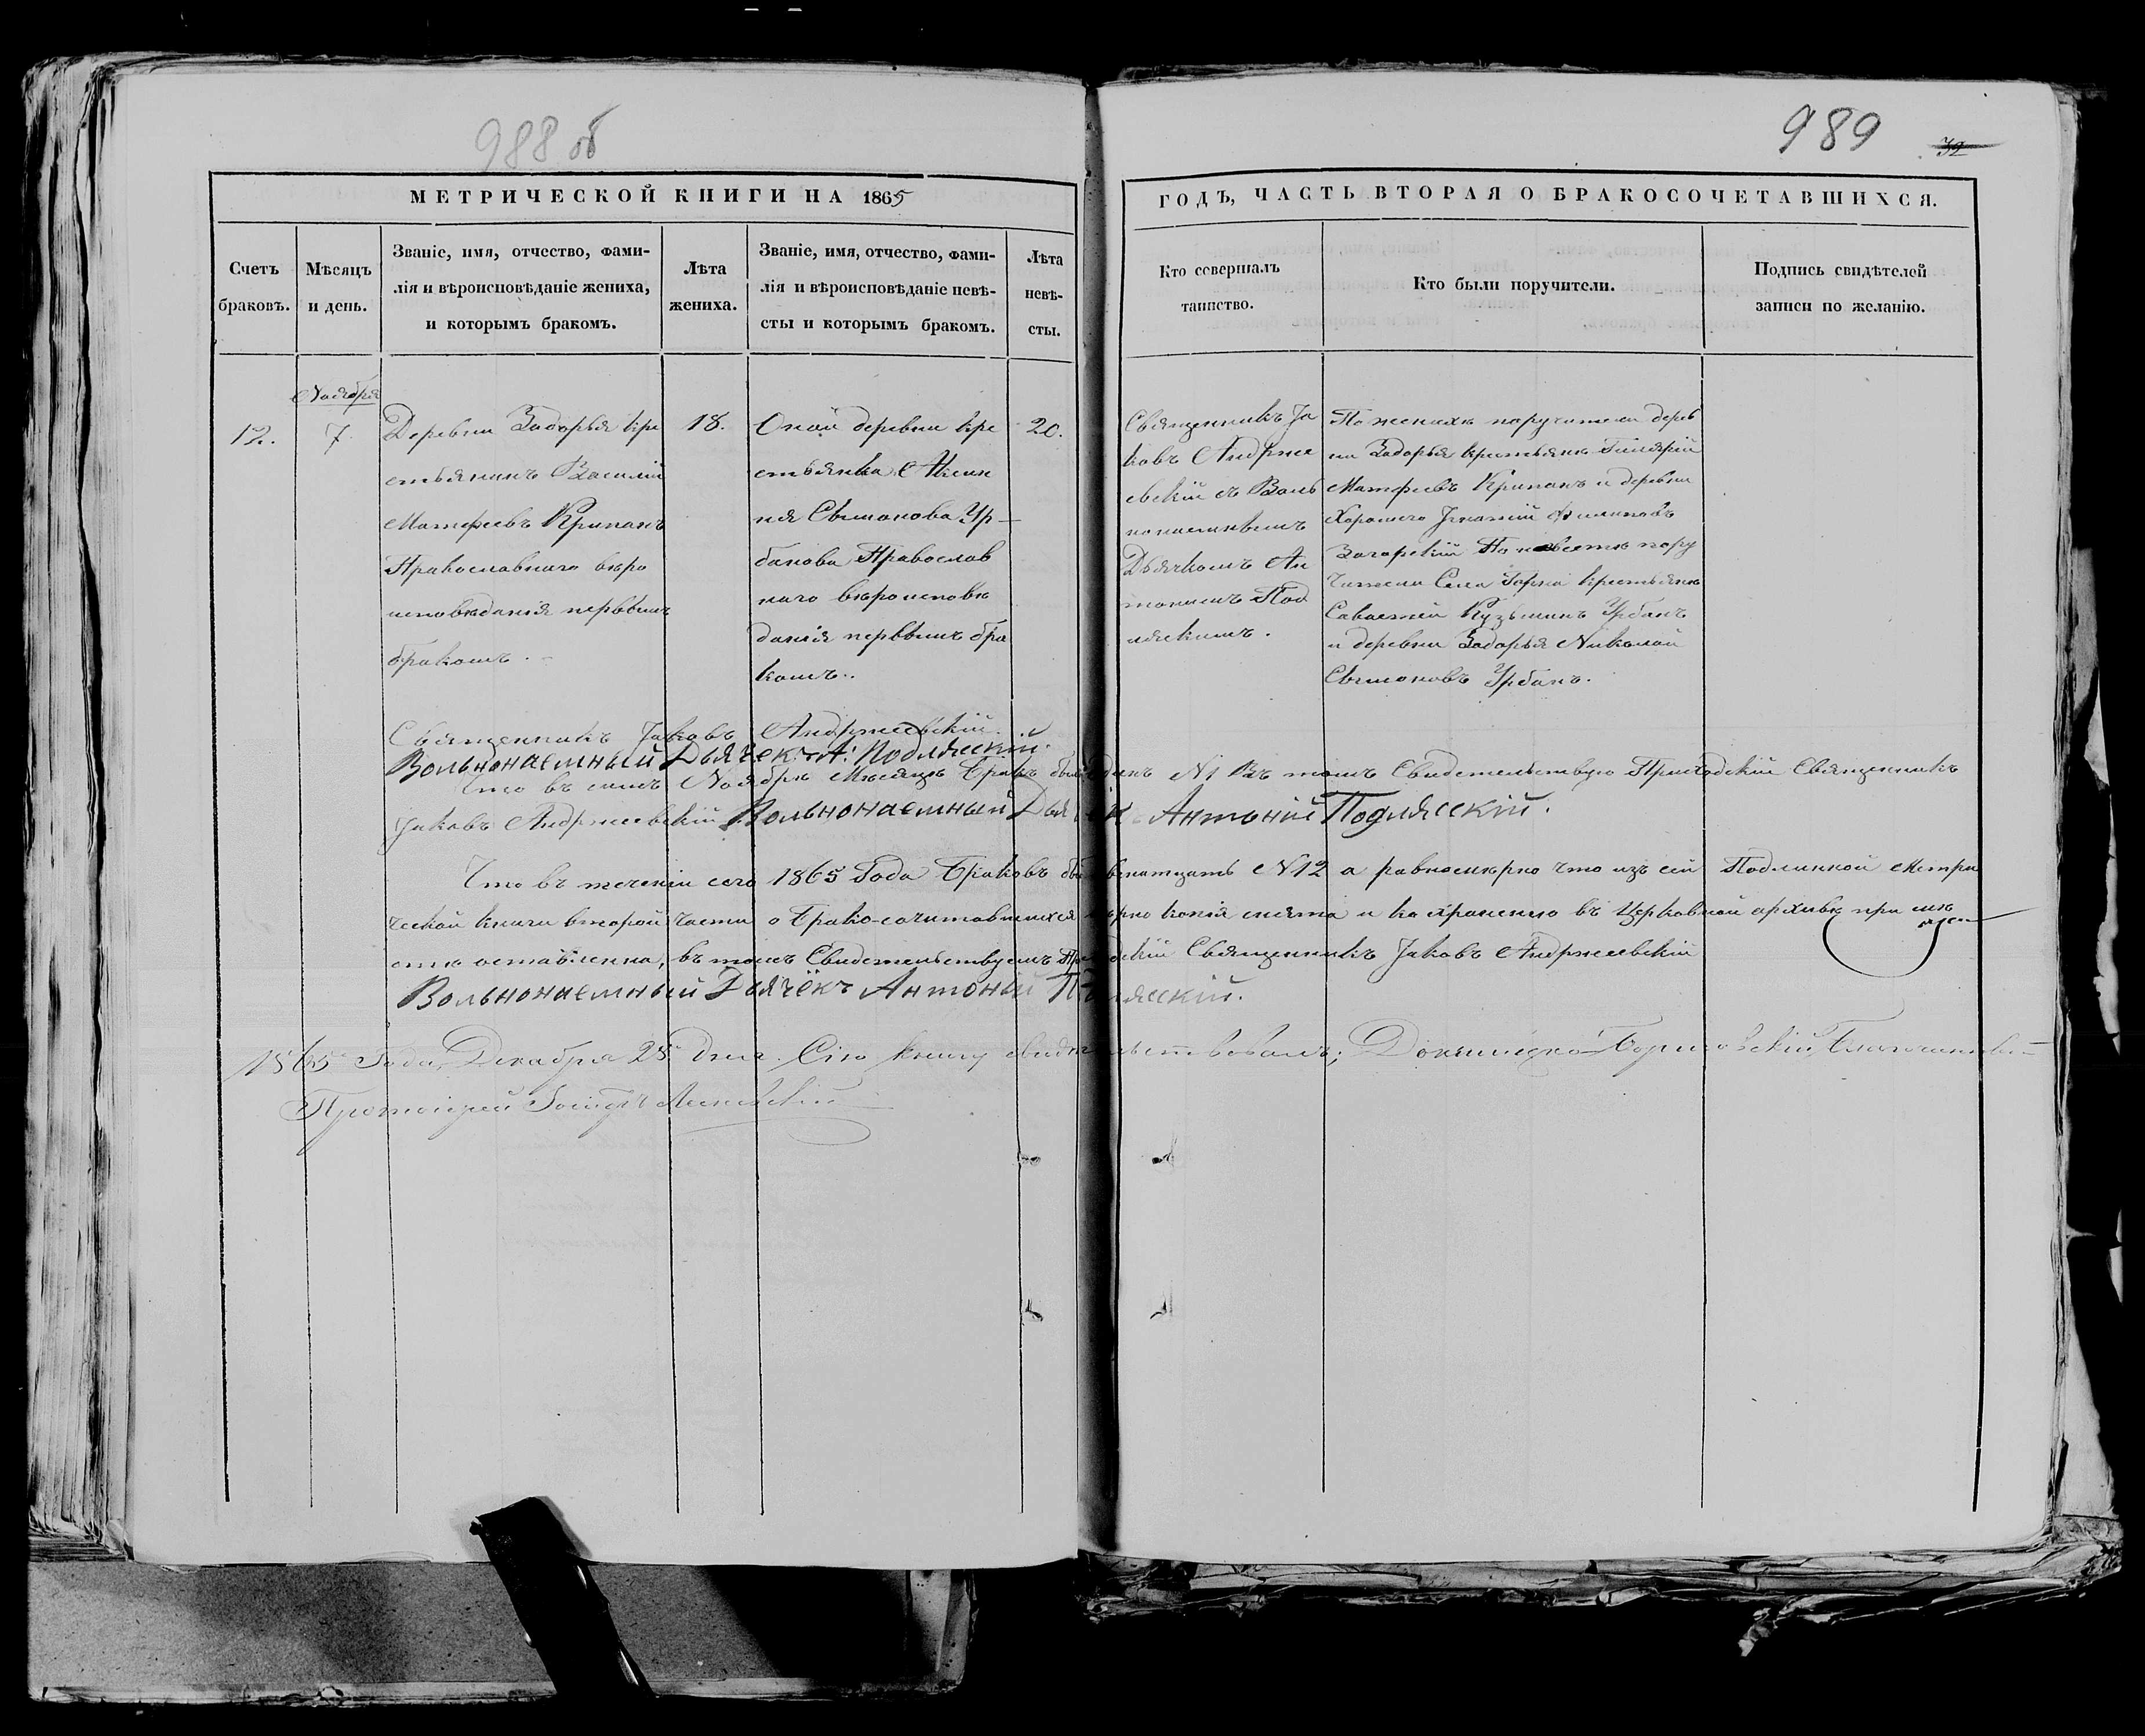 988 об
989
32
МЕТРИЧЕСКОЙ КНИГИ НА 1865
ГОДЪ, ЧАСТЬ ВТОРАЯ О БРАКОСОЧЕТАВШИХСЯ.
Счетъ
браковъ.
Мѣсяцъ
и день.
Званіе, имя, отчество, фами-
лія и вѣроисповѣданіе жениха,
и которымъ бракомъ.
Лѣта
жениха.
Званіе, имя, отчество, фами-
лія и вѣроисповѣданіе невѣ-
сты и которымъ бракомъ.
Лѣта
невѣ-
сты.
Кто совершалъ
таинство.
Кто были поручители.
Подпись свидѣтелей
записи по желанію.
12.
Ноября
7.
Деревни Задорья кре
стьянинъ Василій
Матфеевъ Крипанъ
Православнаго вѣро
исповѣданія первымъ
бракомъ.
18.
Оной деревни кре
стьянка Аксин
ія Сѣмонова Ур-
банова Православ
наго вѣроисповѣ
данія первымъ бра
комъ.
20.
Священникъ Іа
ковъ Андрже
евскій съ Воль
нонаемнымъ
Дьячкомъ Ан
тоніемъ Под
ляскимъ.
По женихѣ поручители дерев
ни Задорья крестьяне
Матфеевъ Крипанъ и деревни
Хорошего Игнатій
Загорскій По невѣстѣ пору
чители Села крестьяне
Савастей Кузьминъ Урбанъ
и деревни Задорья Николай
Сѣмоновъ Урбанъ.
Священникъ Іаковъ Андржеевскій.
Вольнонаемный Дьячекъ А: Подлясскій.
Что въ семъ Ноябрѣ Мѣсяцѣ Бракъ былъ одинъ N1 Въ томъ Свидетельствую Приходскій Священникъ
Іаковъ Андржеевскій Вольнонаемный Дьячекъ Антоній Подлясскій.
Что въ теченіи сего 1865 Года Браковъ двенатцать N12 а равномѣрно что изъ сей Подлинной Метри
ческой книги второй части о Брако-сочитавшихся вѣрно копія снята и ко храненію въ Церковной архивѣ при мѣ
стѣ оставленна, въ томъ Свидетельствуемъ Приходскій Священникъ Іаковъ Андржеевскій
Вольнонаемный Дьячёкъ Антоній Подлясскій.
1865 Года, Декабря 28 дня. Сію книгу свидетельствовалъ;
Протоіерей